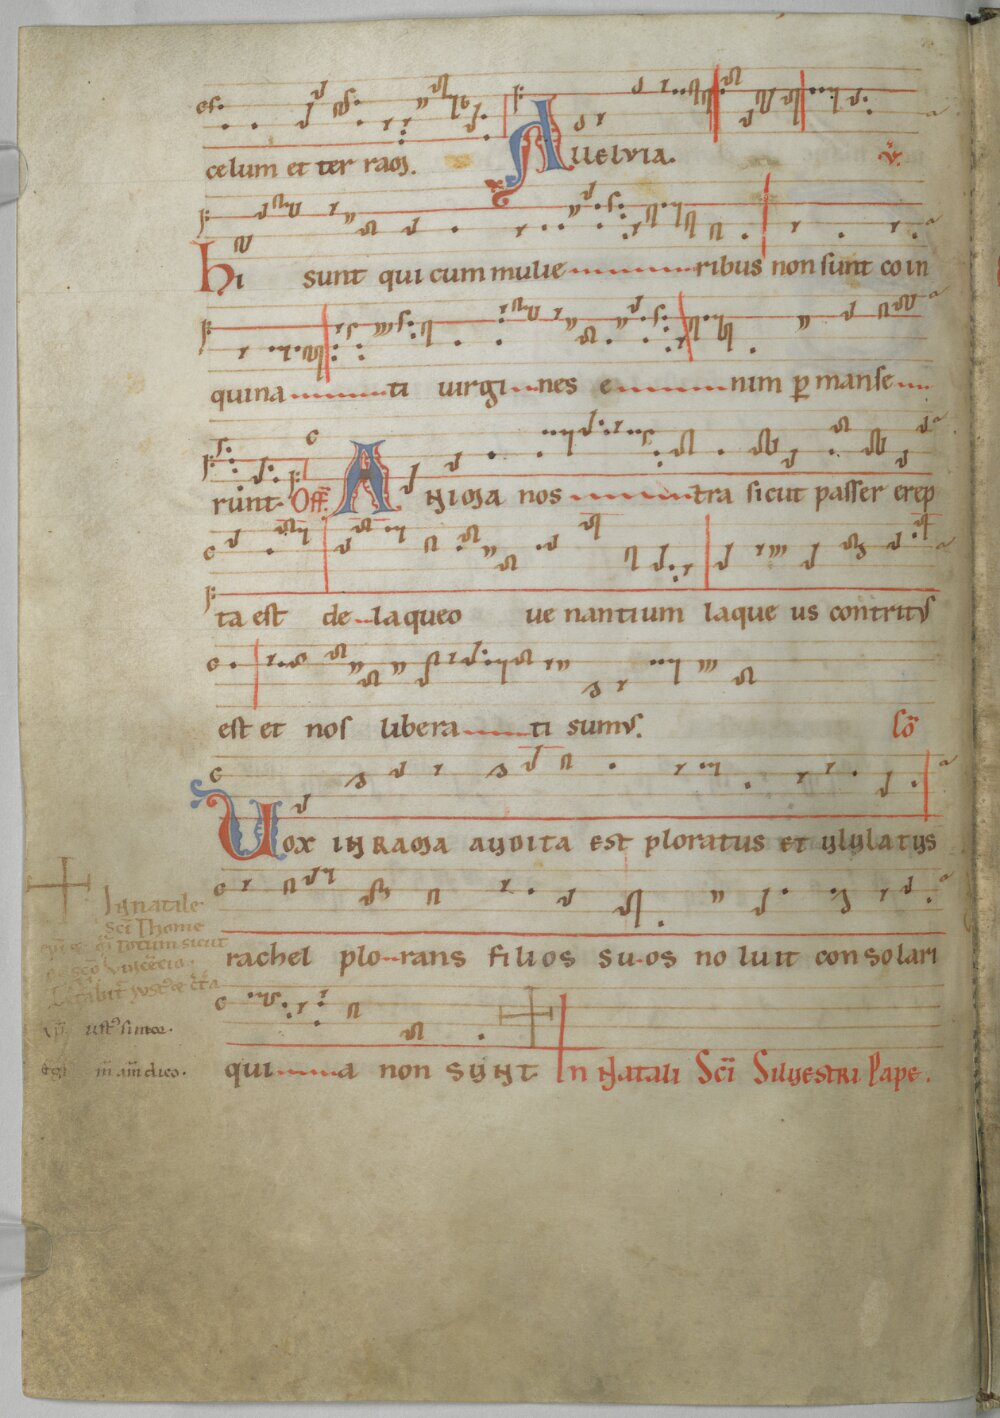 celum et ter ram. Alleluia. ℣.
Hi sunt qui cum mulie ribus non sunt coin
quina ti uirgi nes e nim p̲ manse
runt. Off̄. Anima nos tra sicut passer erep
ta est de laqueo ue nantium laque us contritꝰ
est et nos libera ti sumꝰ. Cō
Vox in rama audita est ploratus et ululatus
rachel plo rans filios su os no luit con solari
qui a non sunt In Natali Sc̄i Siluestri Pape.
In natale
Sc̄i Thome
totum sicut